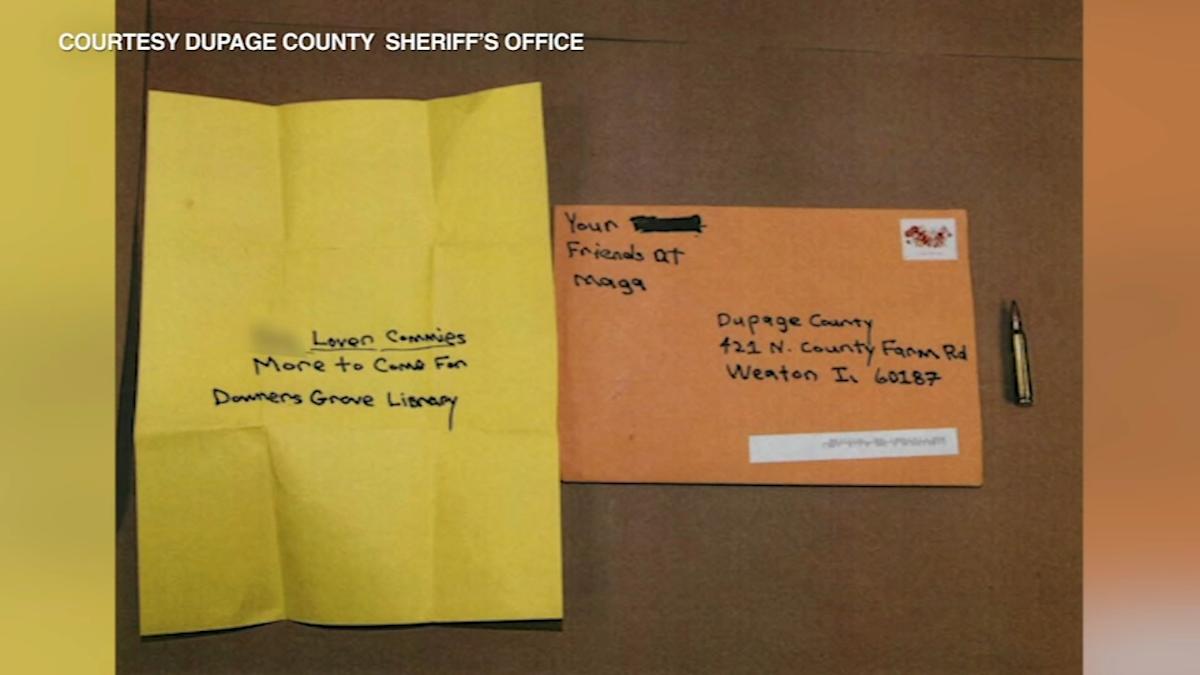 COURTESY DUPAGE COUNTY SHERIFF'S OFFICE
Lover Commies
More to Come For
Downers Grove Library
Your
Friends at
Maga
Dupage County
421 N. County Farm Rd
Weaton IL 60187